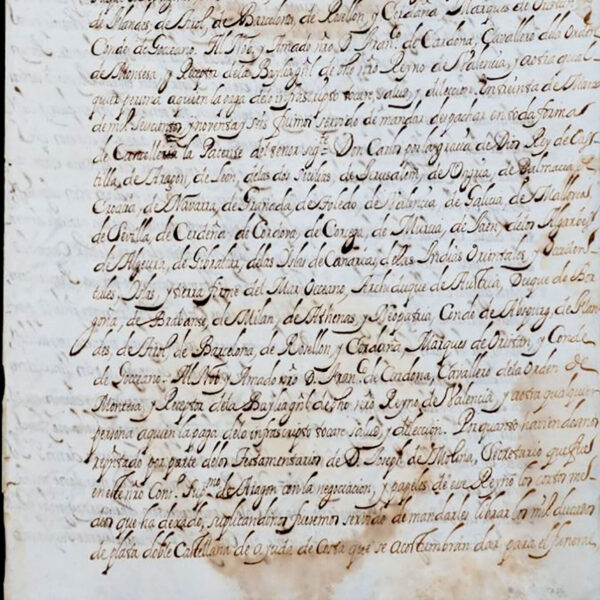 de Flandes, de Tirol, de Barcelona, de Rosellon, y Cerdaña Marques de Oristan,
Conde de Goceano. Al Mco, y Amado nro D. Franco. de Cardona, Cavallero dela Orden
de Montesa, y Receptor dela Baylia gñl de dho nro Reyno de Valencia, y a otra qual
quier persona aquien la paga delo infrascripto tocare, salud, y dileccion. En treinta de Marzo
de mil seiscientos y noventa y seis fuimos servido de mandar despachar en toda forma
de Cancelleria la Patente del tenor sigte. Don Carlos por la gracia de Dios Rey de Cas
tilla, de Aragon, de Leon, de las dos Sicilias, de Jerusalem, de Ungria, de Dalmacia, de
Croacia, de Navarra, de Granada, de Toledo, de Valencia, de Galicia, de Mallorca,
de Sevilla, de Cerdeña, de Cordova, de Corcega, de Murcia, de Jaen, delos Algarbes,
de Algezira, de Gibraltar, delas Islas de Canarias, delas Indias Orientales, y Occiden
tales, Islas, y tierra firme del Mar Oceano, Archiduque de Austria, Duque de Bor
goña, de Brabante, de Milan, de Athenas, y Neopatria, Conde de Abspurg, de Flan
des, de Tirol, de Barcelona, de Rosellon, y Cerdaña, Marques de Oristan, y Conde
de Goceano. Al Mco y Amado nro D. Franco. de Cardona, Cavallero dela Orden de
Montesa, y Receptor dela Baylia gñl de dho nro Reyno de Valencia, y a otra qualquier
persona aquien la paga delo infrascripto tocare salud, y dileccion. Por quanto haviendosenos
representado por parte delos Testamentarios de D. Joseph de Molina, Secretario que fue
en este nro Conso. Supmo. de Aragon con la negociacion, y papeles de ese Reyno los cortos me
dios que ha dexado, suplicandonos fuessemos servido de mandarles librar los mil ducados
de plata doble Castellana de ayuda de Costa que se acostumbran dar para el funeral